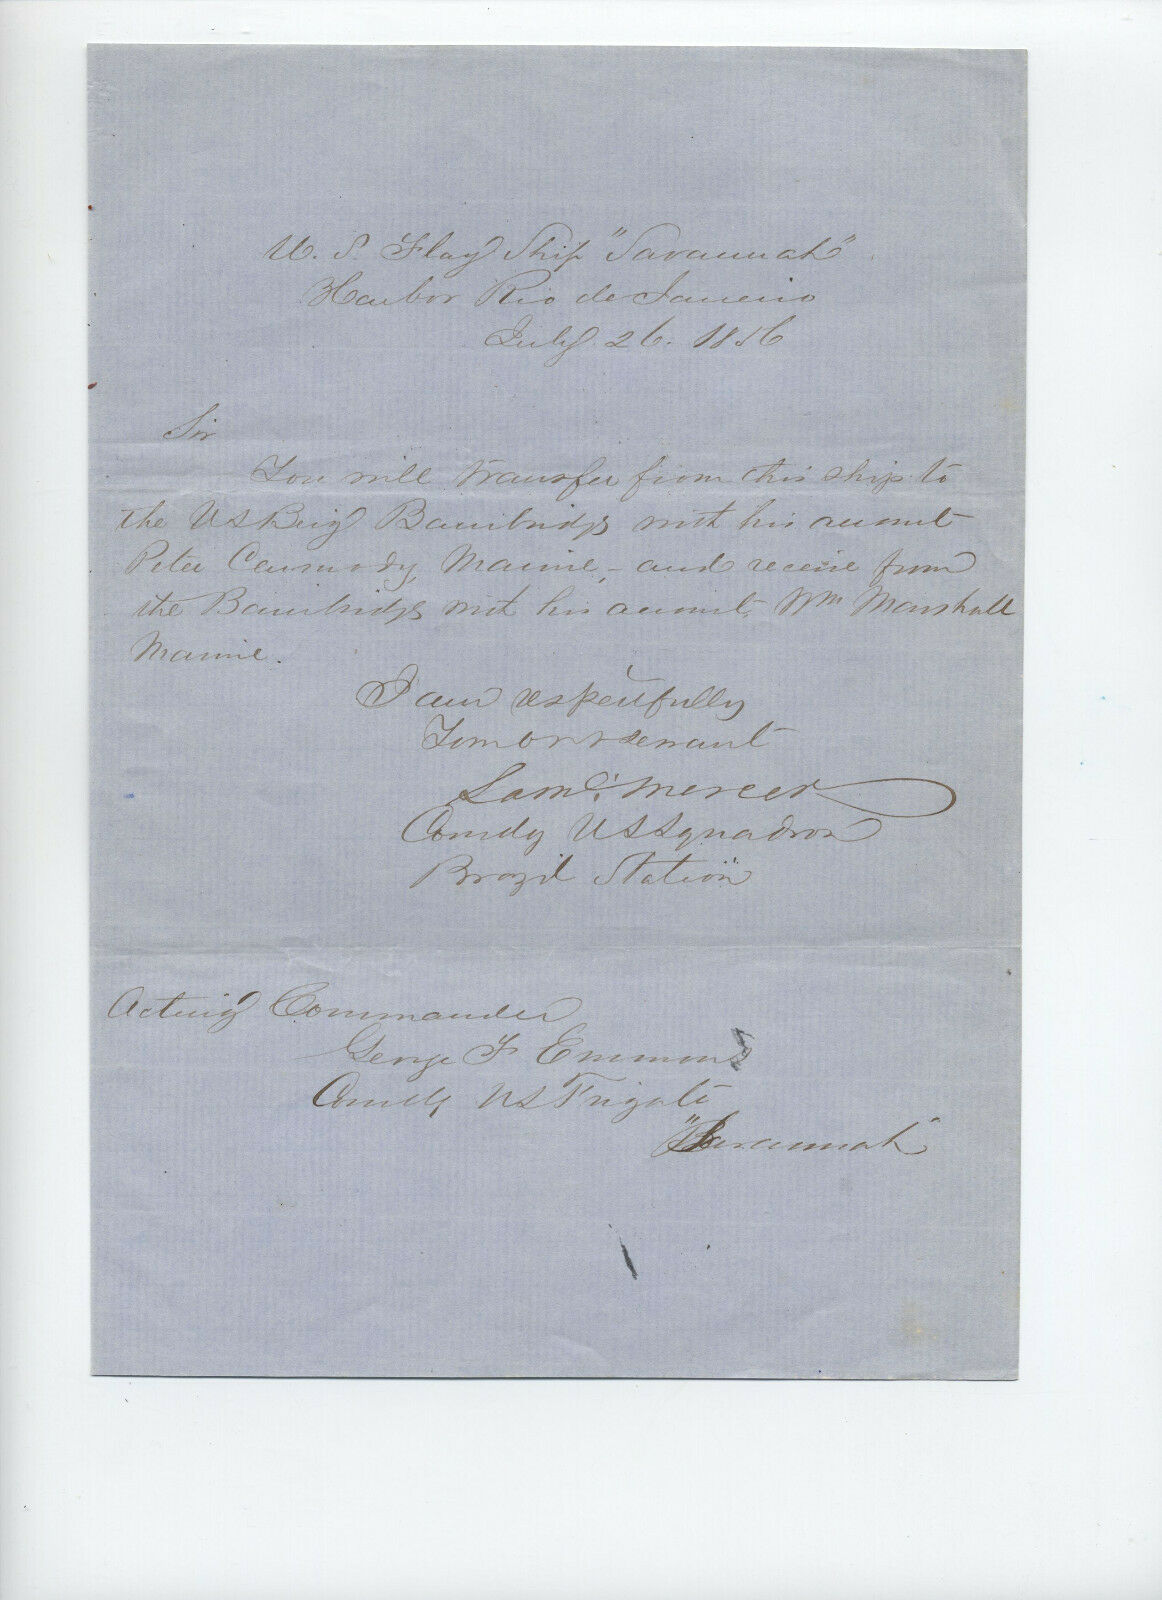 U. S. Flag Ship "Savannah"
Harbor Rio de Janeiro
July 26. 1856
Sir
You will transfer from this ship to
the US Brig Bainbridge with his account
Peter Carmody, Marine, - and receive from
the Bainbridge with his account, Wm Marshall
Marine.
I am respectfully
Your obt servant
Saml Mercer
Comdg US Squadron
Brazil Station
Acting Commander
George F Emmons
Comdg US Frigate
"Savannah"